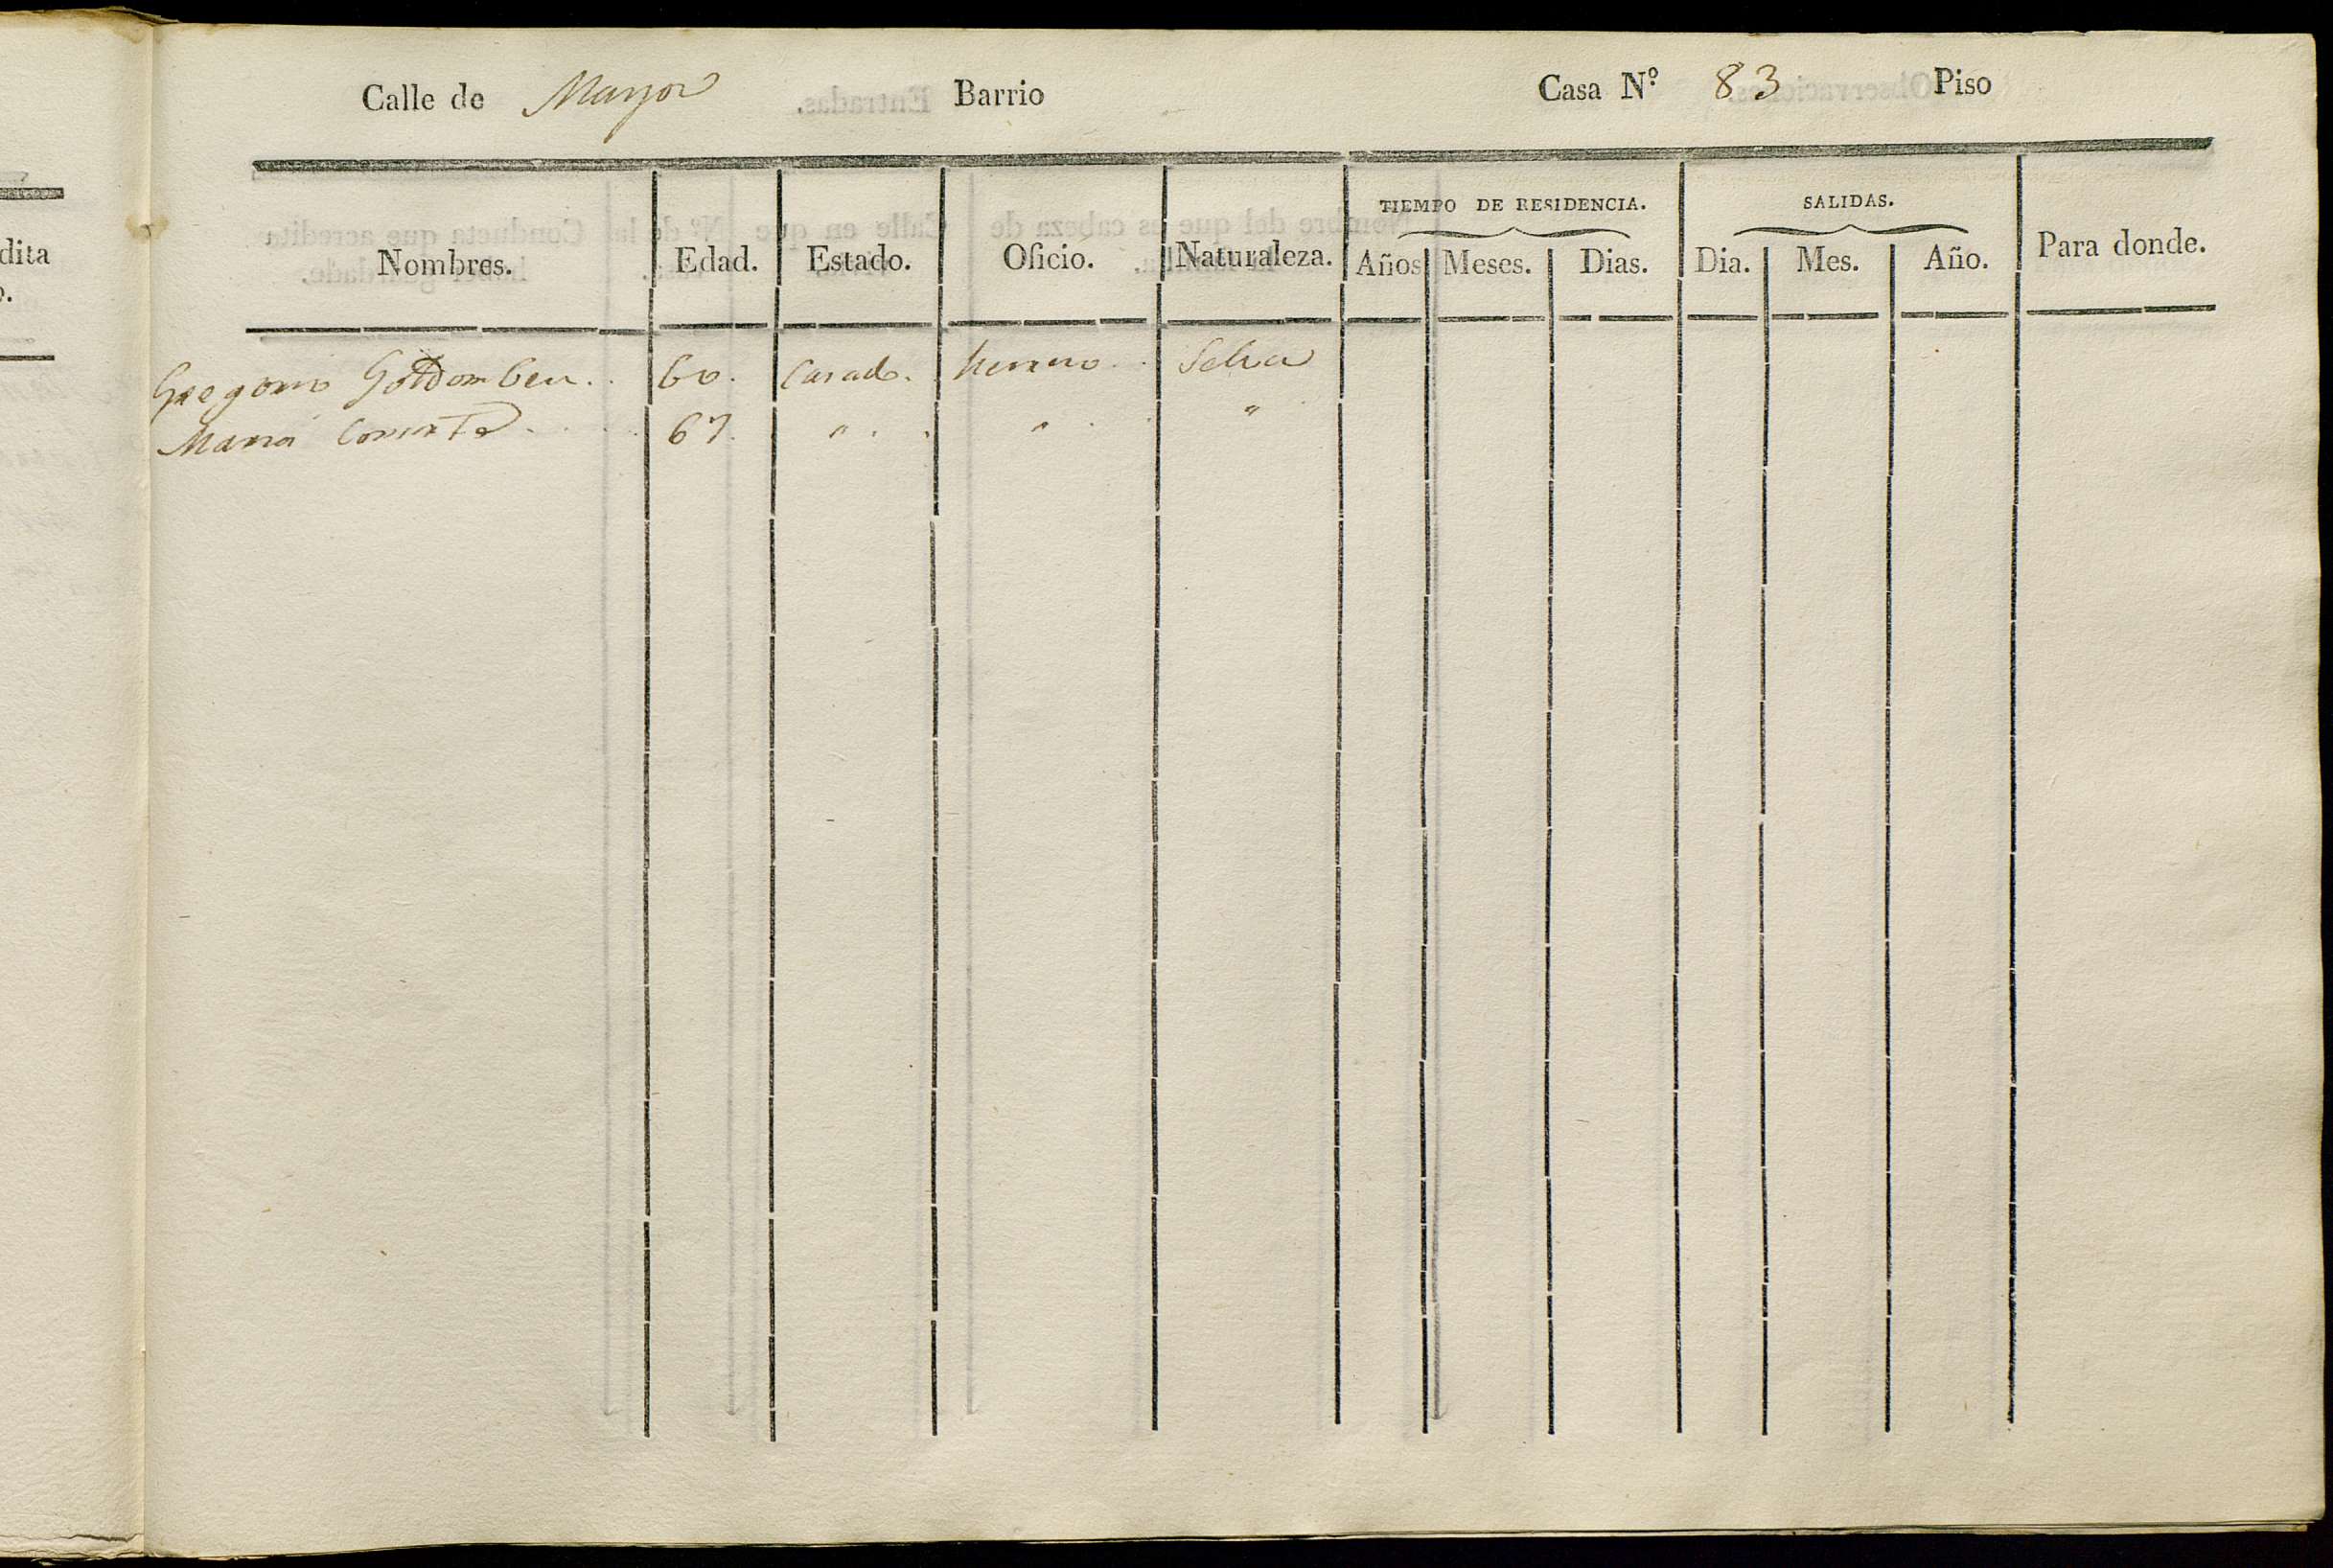 Calle de Mayor Barrio Casa N.º 83 Piso
TIEMPO DE RESIDENCIA. SALIDAS.
Nombres. Edad. Estado. Oficio. Naturaleza. Años Meses. Dias. Dia. Mes. Año. Para donde.
Gregorio 60. Casado. herrero Selva
Maria 67. " " "
dita
o.